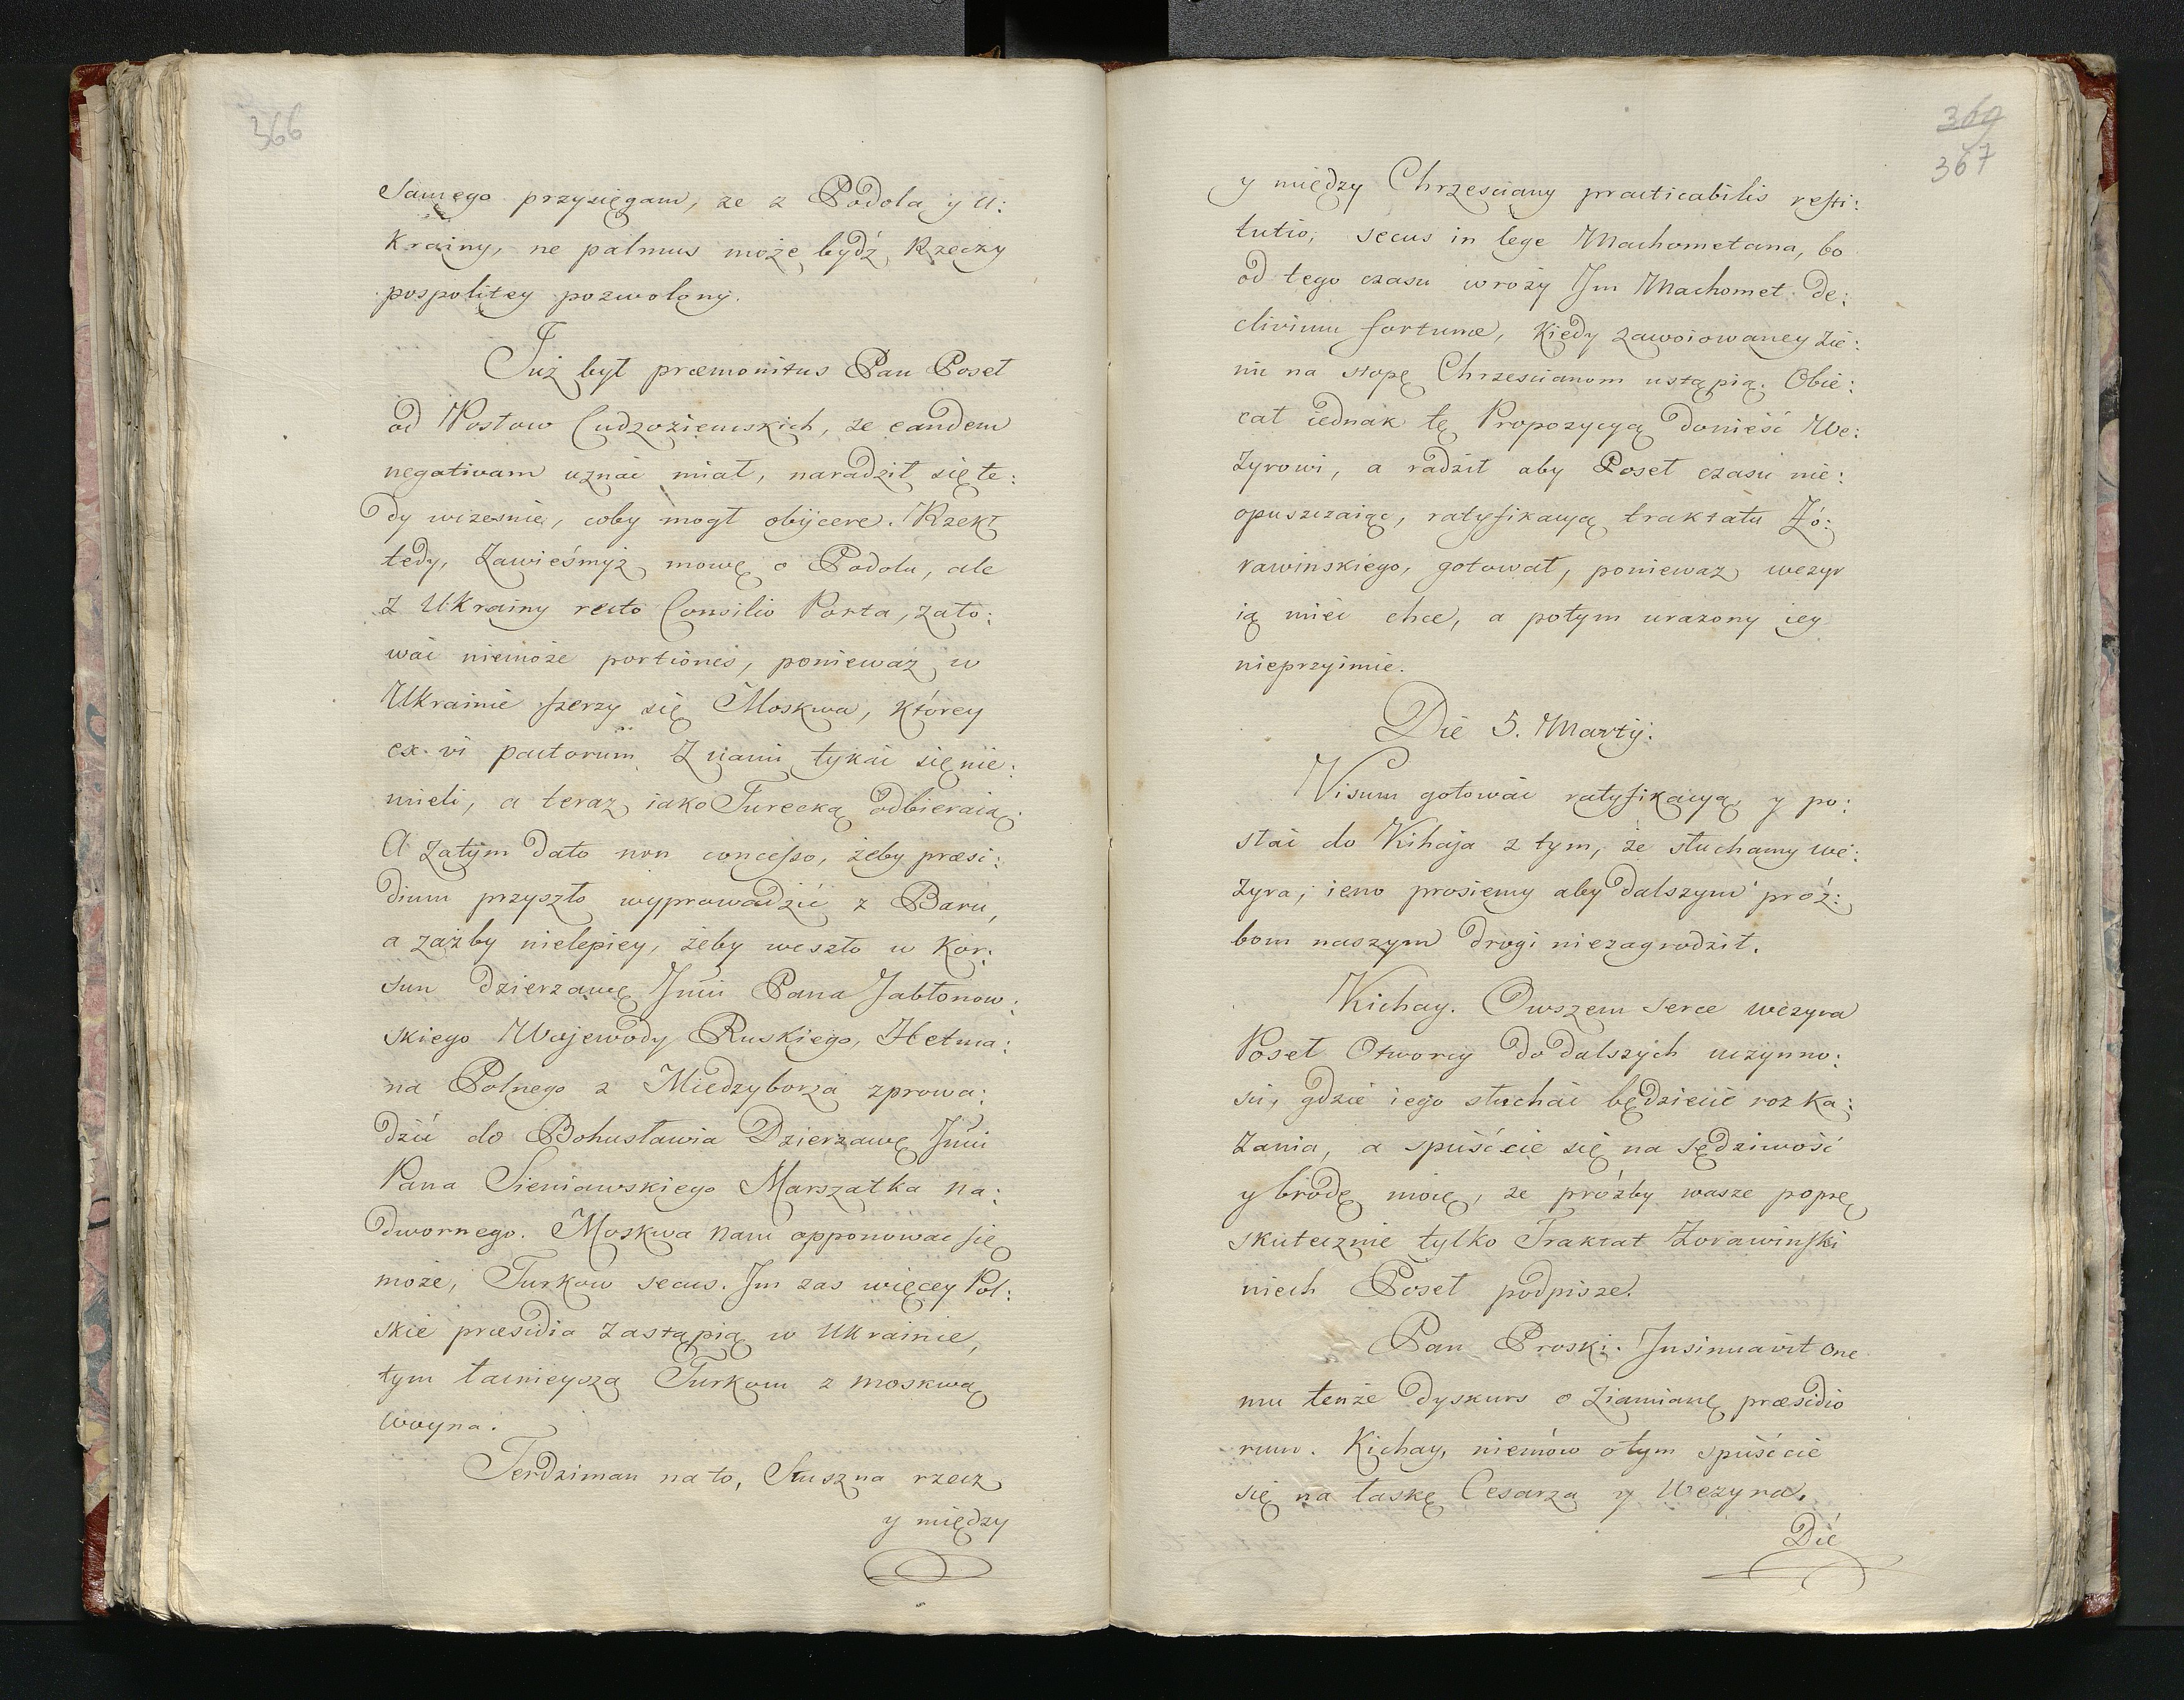 366
samego przysięgam, że z Podola y U:
krainy, ne palmus może bydź Rzeczy
pospolitey pozwolony.
Już był præmonitus Pan Poseł
od Posłow Cudzoziemskich, że eandem
negativam uznać miał, naradził się te:
dy wczesnie, coby mogł obijcere. Rzekł
tedy, Zawieśmyż mowę o Podolu, ale
z Ukrainy recto Consilio Porta, żało:
wać niemoże portionis, ponieważ w
Ukrainie szerzy się Moskwa, ktorey
ex vi pactorum z nami tykać się nie:
mieli, a teraz iako Turecką odbieraią.
A zatym dato non concesso, żeby præsi:
dium przyszło wyprowadzić z Baru,
a zażby nielepiey, żeby weszło w Kor:
sun dzierzawę Jmci Pana Jabłonow:
skiego Wojewody Ruskiego, Hetma:
na Polnego z Miedzyborza zprowa:
dzić do Bohusławia Dzierzawę Jmci
Pana Sieniawskiego Marszałka Na:
dwornego. Moskwa nam opponować się
może, Turkow secus. Im zas więcey Pol:
skie præsidia zastąpią w Ukrainie,
tym łacnieysza Turkom z Moskwą
woyna.
Terdziman na to, Słuszna rzecz
y między
369
367
y między Chrzesciany practicabilis resti:
tutio, secus in lege Machometana, bo
od tego czasu wroży Im Machomet de:
clivium fortunæ, kiedy zawoiowaney zie:
mi na stopę Chrzescianom ustąpią. Obie:
cał iednak tę Propozycyą donieść We:
zyrowi, a radził aby Poseł czasu nie:
opuszczaiąc, ratyfikacyą traktatu Żó:
rawińskiego, gotował, ponieważ wezyr
ią mieć chce, a potym urażony iey
nieprzyimie.
Die 5. Martij:
Visum gotować ratyfikacyą y po:
słać do Kihaja z tym, że słuchamy we:
zyra, ieno prosiemy aby dalszym proź:
bom naszym drogi niezagrodził.
Kichay. Owszem serce wezyra
Poseł Otworzy do dalszych uczynno:
ści, gdzie iego słuchać będziecie rozka:
zania, a spuśćcie się na sędziwość
y brodę moię, że proźby wasze poprę
skutecznie tylko Traktat Żorawinski
niech Poseł podpisze.
Pan Proski. Insinuavit one
mu tenże dyskurs o ziamianę præsidio
rum. Kichay, niemów o tym spuśćcie
się na łaskę Cesarza y Wezyra.
Die